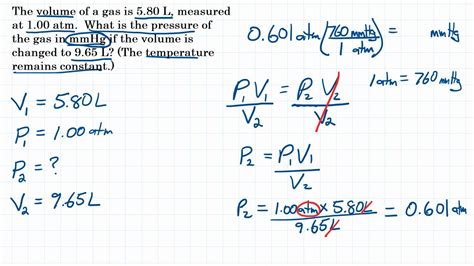 The volume of a gas is 5.80 L, measured
at 1.00 atm. What is the pressure of
the gas in mmHg if the volume is
changed to 9.65 L? (The temperature
remains constant.)
V₁ = 5.80 L
P₁ = 1.00 atm
P₂ = ?
V₂ = 9.65 L
0.601 atm (760 mmHg / 1 atm) = mmHg
1 atm = 760 mmHg
P₁V₁ / V₂ = P₂ V₂ / V₂
P₂ = P₁V₁ / V₂
P₂ = 1.00 atm × 5.80 L / 9.65 L = 0.601 atm